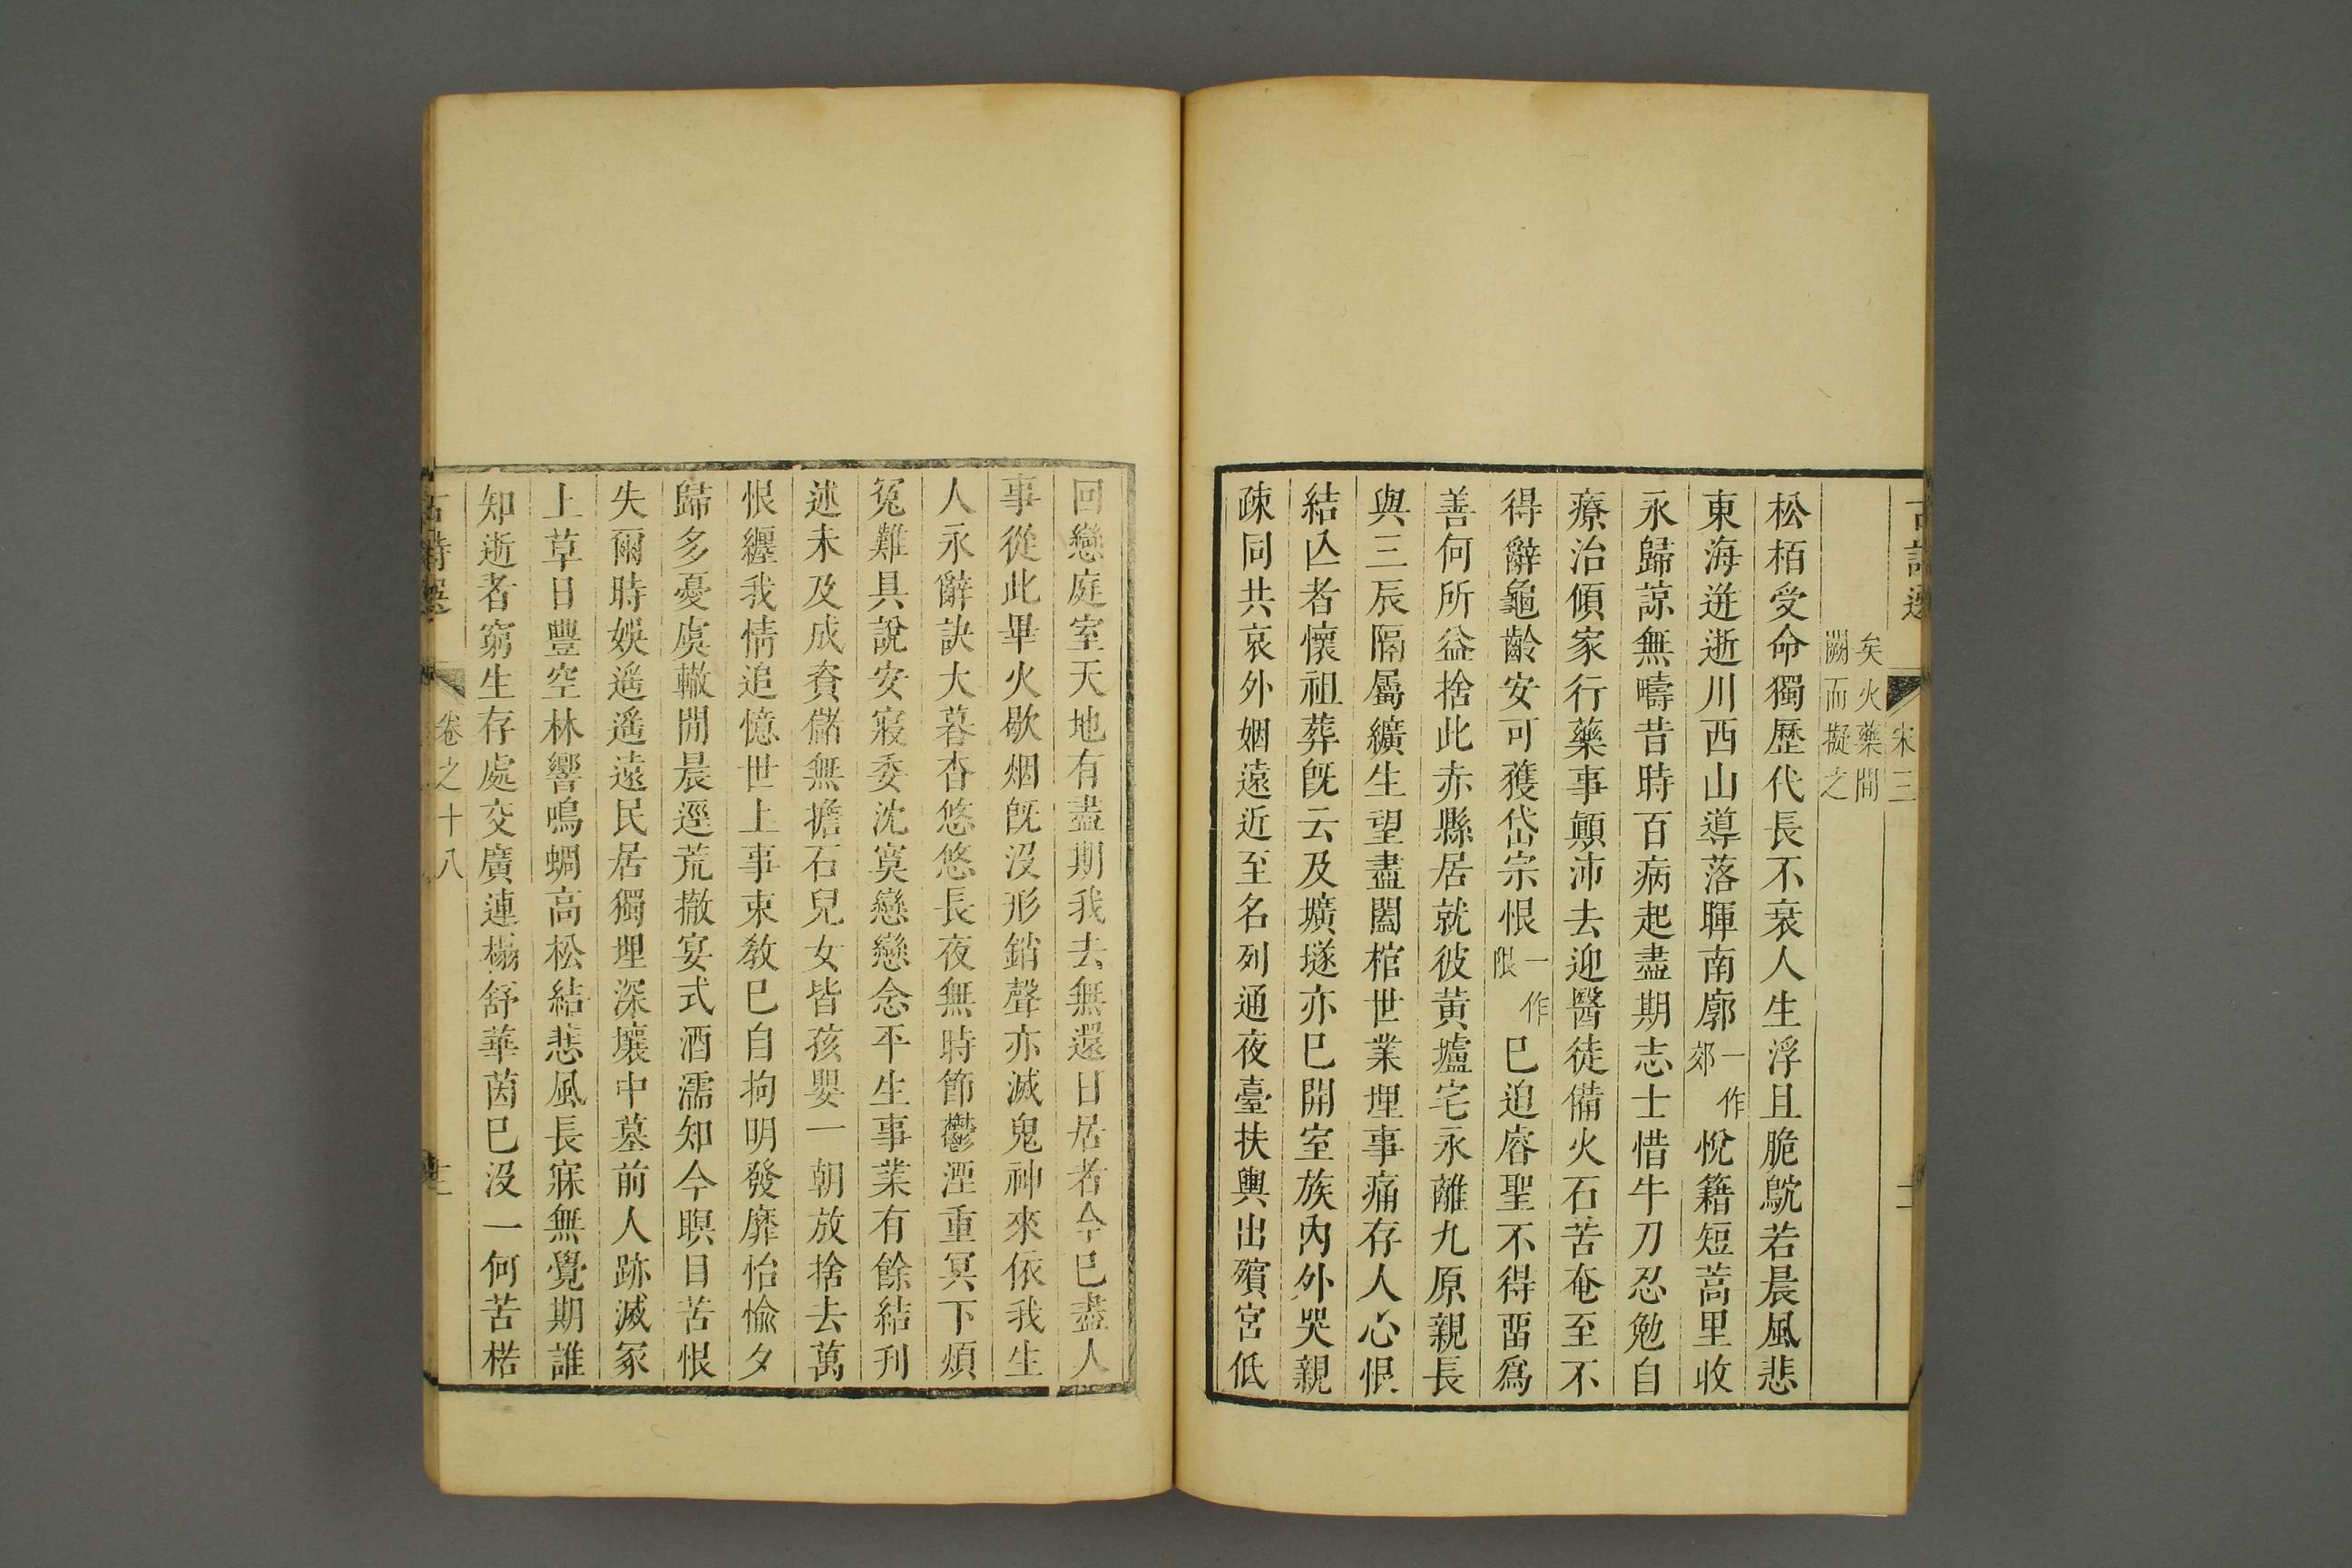 古詩選
宋三
二
矣火藥間
闕而擬之
松栢受命獨歷代長不衰人生浮且脆鴥若晨風悲
東海迸逝川西山導落暉南廓一作郊悅籍短蒿里收
永歸諒無疇昔時百病起盡期志士惜牛刀忍勉自
療治傾家行藥事顛沛去迎醫徒備火石苦奄至不
得辭龜齡安可獲岱宗恨一作限巳迫睿聖不得畱爲
善何所益捨此赤縣居就彼黃壚宅永離九原親長
與三辰隔屬纊生望盡闔棺世業埋事痛存人心恨
結亾者懷祖葬旣云及壙墜亦巳開室族內外哭親
疎同共哀外姻遠近至名列通夜臺扶輿出殯宮低
回戀庭室天地有盡期我去無還日居者今巳盡人
事從此畢火歇烟旣沒形銷聲亦滅鬼神來依我生
人永辭訣大暮杳悠悠長夜無時節鬱湮重冥下煩
冤難具說安寢委沈寞戀戀念平生事業有餘結刋
述未及成資儲無擔石兒女皆孩嬰一朝放捨去萬
恨纒我情追憶世上事束敎巳自拘明發靡怡愉夕
歸多憂虞轍閒晨逕荒撤宴式酒濡知今瞑目苦恨
失爾時娛遥遥遠民居獨埋深壤中墓前人跡滅冢
上草日豐空林響鳴蜩高松結悲風長寐無覺期誰
知逝者窮生存處交廣連榻舒華茵巳沒一何苦楛
古詩選
卷之十八